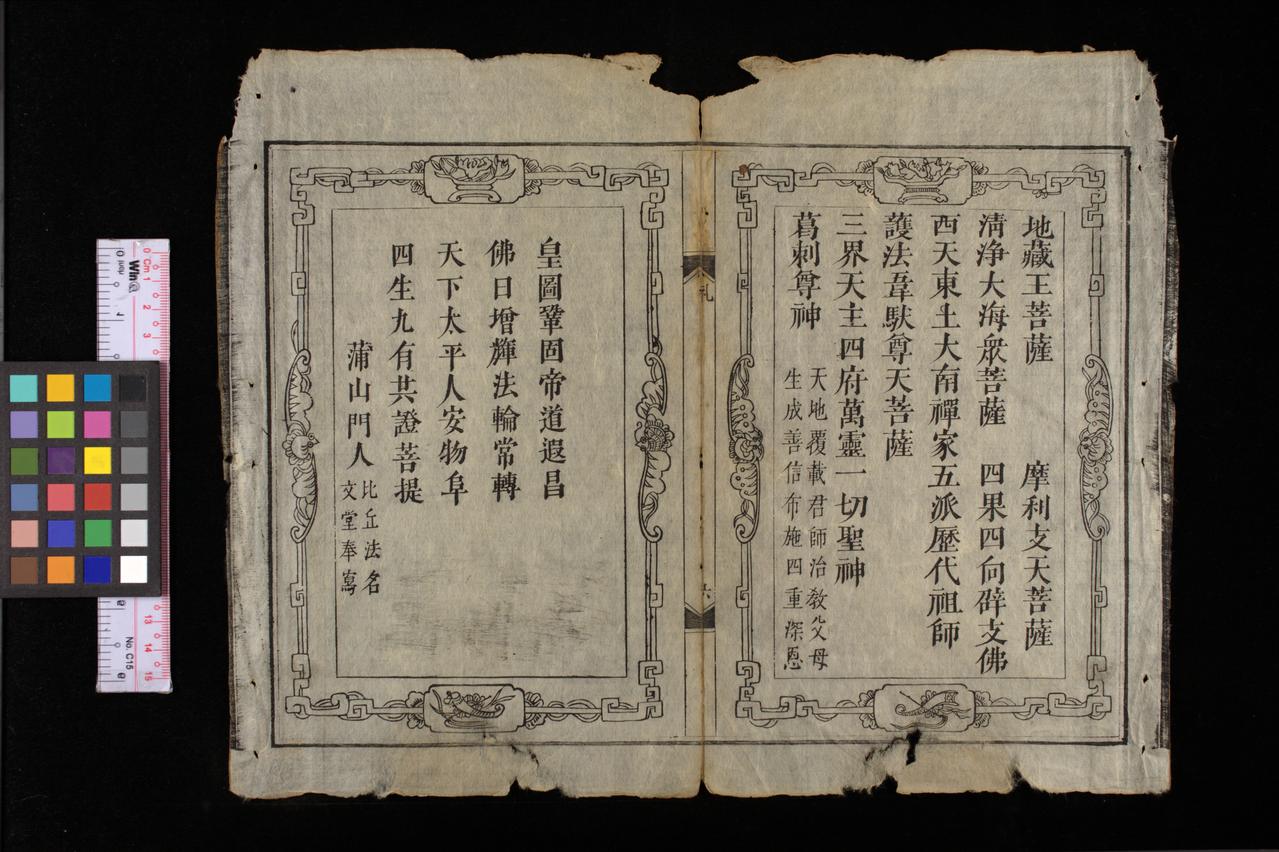 地藏王菩薩 摩利支天菩薩
清浄大海眾菩薩 四果四向辟支佛
西天東土大南禪家五派歷代祖師
護法韋馱尊天菩薩
三界天主四府萬靈一切聖神
葛刺尊神
天地覆載君師治教父母
生成善信布施四重深恩
礼
六
皇圖鞏固帝道遐昌
佛日增輝法輪常轉
天下太平人安物阜
四生九有共證菩提
蒲山門人
比丘法名
文堂奉寫